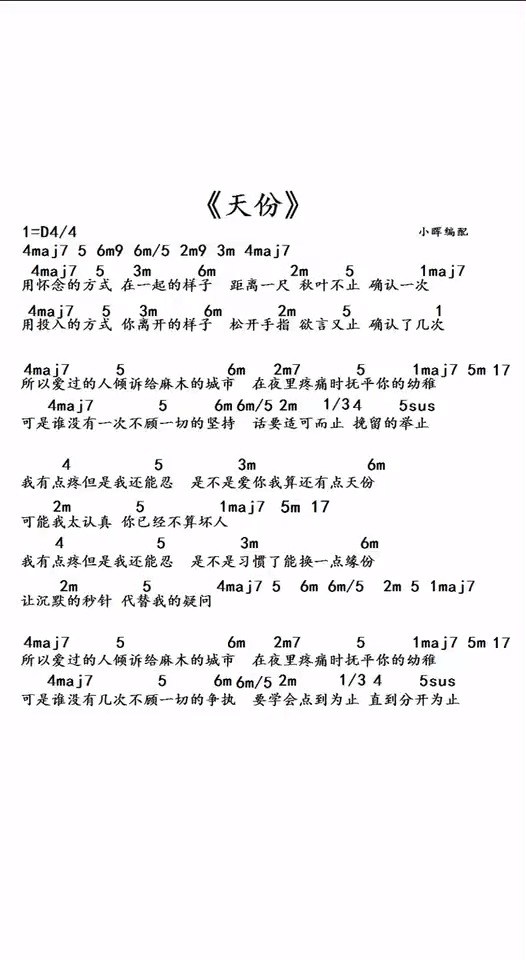 《天份》
1=D4/4 小晖编配
4maj7 5 6m9 6m/5 2m9 3m 4maj7
4maj7 5 3m 6m 2m 5 1maj7
用怀念的方式 在一起的样子 距离一尺 秋叶不止 确认一次
4maj7 5 3m 6m 2m 5 1
用投入的方式 你离开的样子 松开手指 欲言又止 确认了几次
4maj7 5 6m 2m7 5 1maj7 5m 17
所以爱过的人倾诉给麻木的城市 在夜里疼痛时抚平你的幼稚
4maj7 5 6m 6m/5 2m 1/3 4 5sus
可是谁没有一次不顾一切的坚持 话要适可而止 挽留的举止
4 5 3m 6m
我有点疼但是我还能忍 是不是爱你我算还有点天份
2m 5 1maj7 5m 17
可能我太认真 你已经不算坏人
4 5 3m 6m
我有点疼但是我还能忍 是不是习惯了能换一点缘份
2m 5 4maj7 5 6m 6m/5 2m 5 1maj7
让沉默的秒针 代替我的疑问
4maj7 5 6m 2m7 5 1maj7 5m 17
所以爱过的人倾诉给麻木的城市 在夜里疼痛时抚平你的幼稚
4maj7 5 6m 6m/5 2m 1/3 4 5sus
可是谁没有几次不顾一切的争执 要学会点到为止 直到分开为止